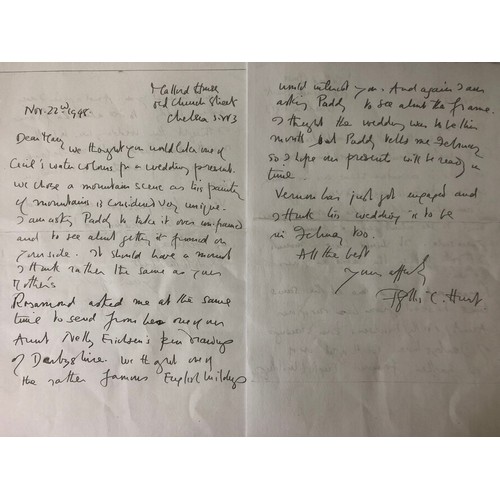 Mallord House
Old Church Street
Chelsea S.W.3
Nov. 22nd 1948
Dear
we thought you would like one of
Cecil's water colours for a wedding present.
We chose a mountain scene as his painting
of mountains is considered very unique.
I am asking Paddy to take it over un-framed
and to see about getting it framed on
your side. It should have a mount
I think rather the same as your
Mother's
Rosamond asked me at the same
time to send from her one of our
Aunt Nelly Erichsen's pen drawings
of Derbyshire. We thought one of
the rather famous English buildings
would interest you. And again I am
asking Paddy to see about the frame.
I thought the wedding was to be this
month but Paddy tells me February
so I hope our presents will be ready in
time.
Vernon has just got engaged and
I think his wedding is to be
in February too.
All the best
Yours affectly
Phyllis C. Hunt